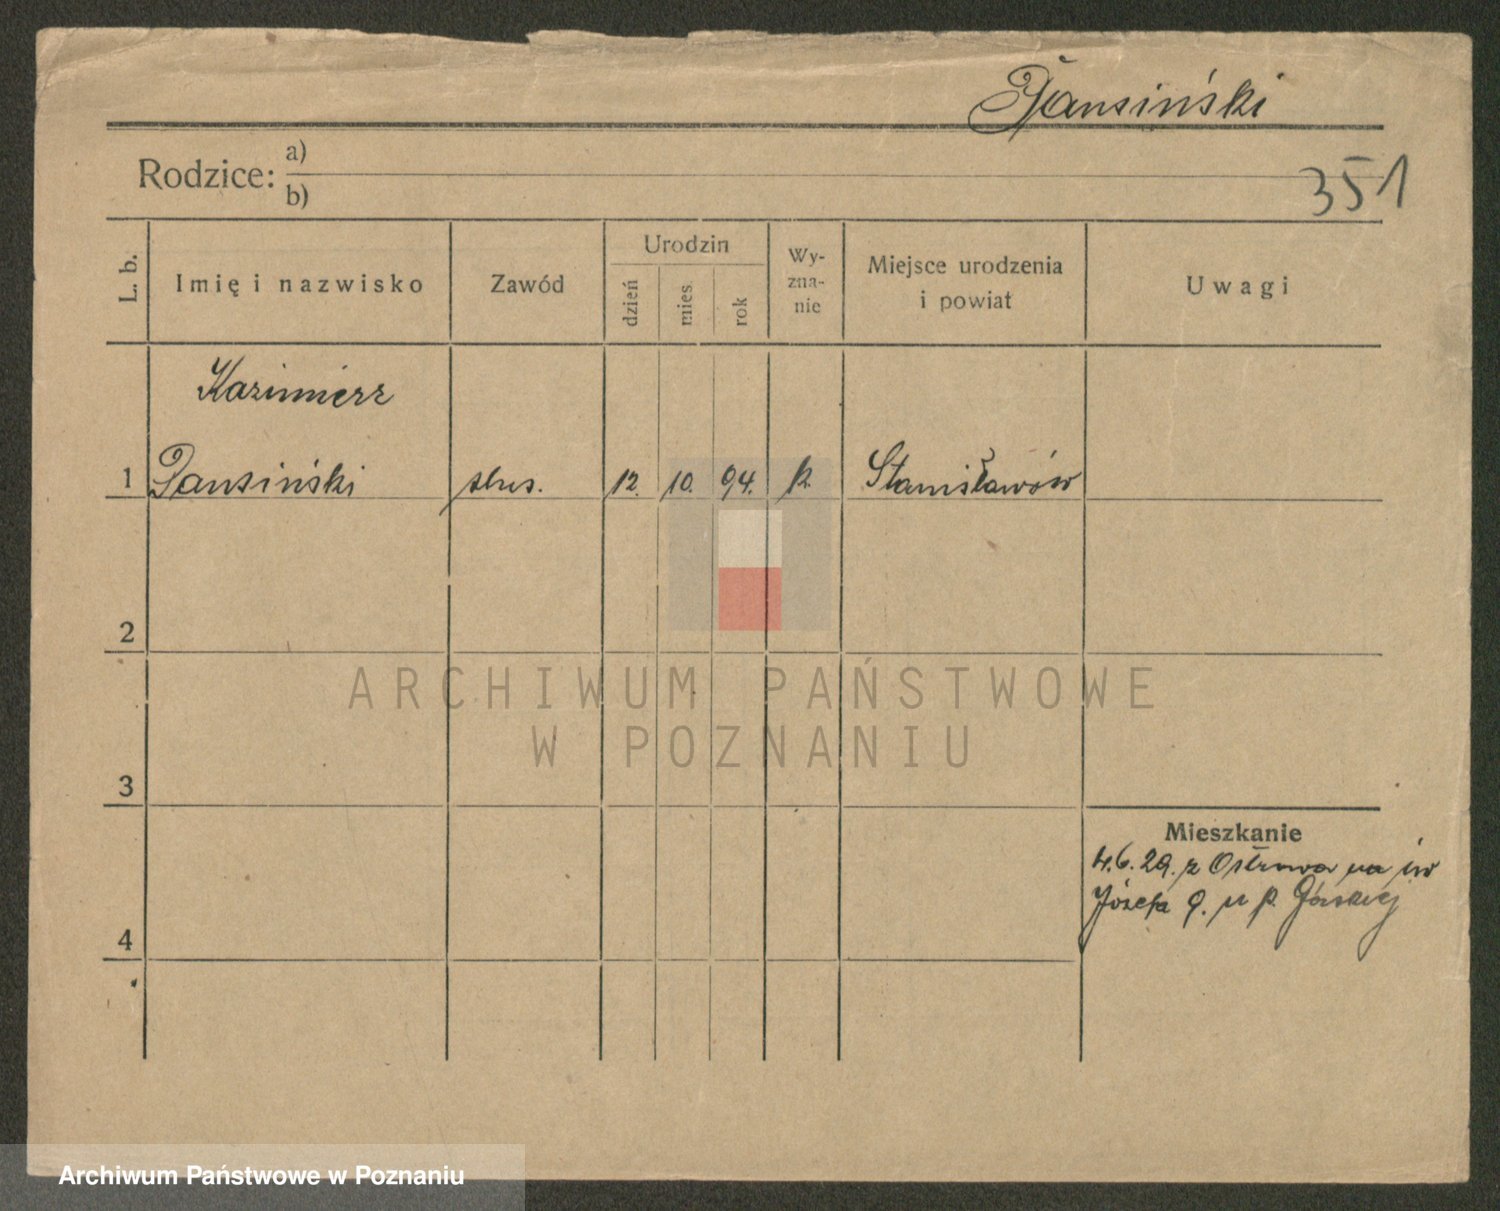 Pansiński
Rodzice: a)
b)
351
L. b.
Imię i nazwisko
Zawód
Urodzin
dzień
mies
rok
Wy-
zna-
nie
Miejsce urodzenia
i powiat
Uwagi
Kazimierz
1 Pansiński ślus. 12. 10. 94. k. Stanisławów
2
3
4
Mieszkanie
4.6.29. z Ostrowa na św
Józefa 9. u p. Górskiej
ARCHIWUM PAŃSTWOWE
W POZNANIU
Archiwum Państwowe w Poznaniu